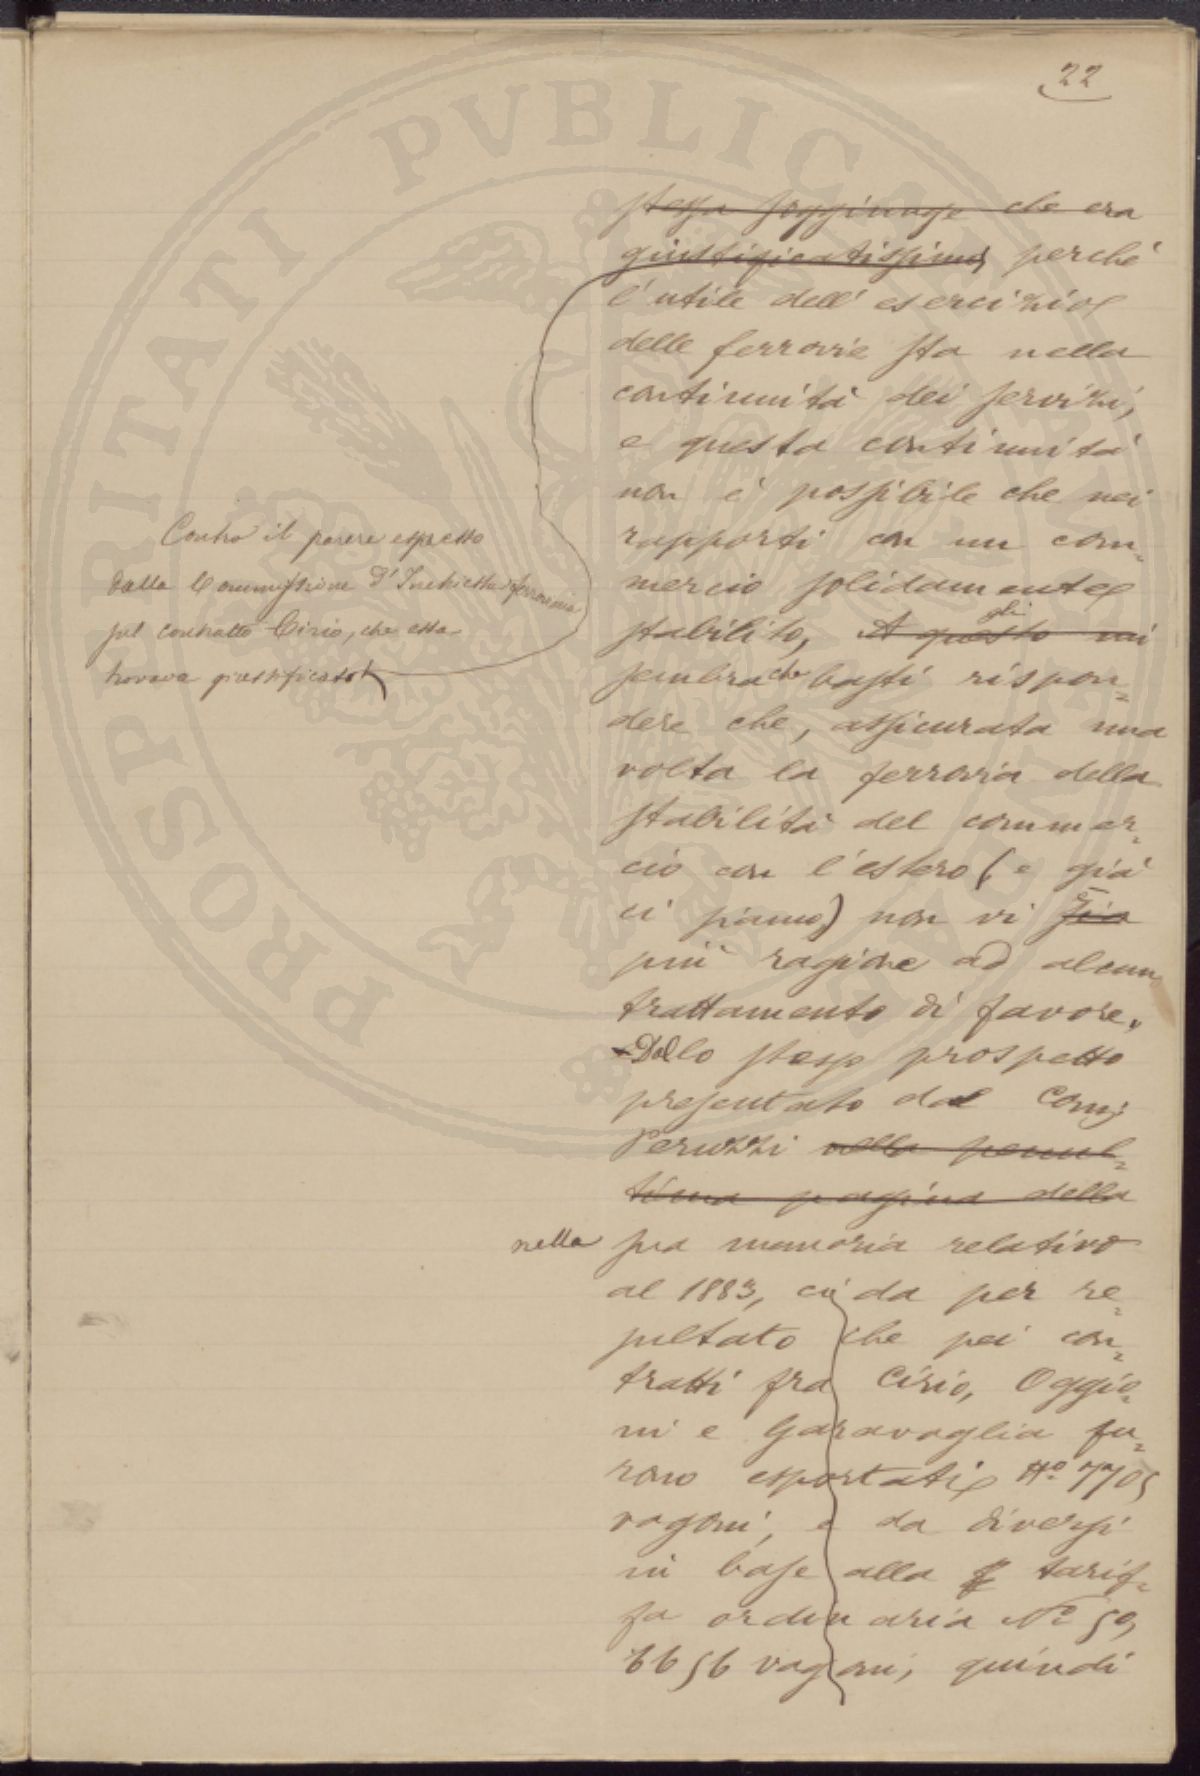 22
stessa soggiunge che era
giustificatissimo, perchè
l'utile dell'esercizio
delle ferrovie sta nella
continuità dei servizi,
e questa continuità
non è possibile che nei
rapporti con un com=
mercio solidamente
stabilito, A questo mi
gli
sembra che basti rispon=
dere che, assicurata una
volta la ferrovia della
stabilità del commer=
cio con l'estero (e già
ci siamo) non vi sia
è
più ragione ad alcun
trattamento di favore.
Dallo stesso prospetto
presentato dal Comm
Peruzzi nella penul=
tima pagina della
nella sua memoria relativo
al 1883, ci da per re=
sultato che pei con=
tratti fra Cirio, Oggio=
ni e Garavaglia fu=
rono esportati No 7705
vagoni, e da diversi
in base alla tarif=
fa ordinaria No 50,
6656 vagoni, quindi
Contro il parere espresso
dalla Commissione d'Inchiesta ferroviaria
sul contratto Cirio, che essa
trovava giustificato
PROSPERITATI PVBLICAE AVGENDAE